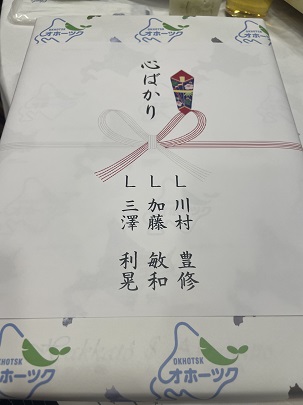 OKHOTSK
オホーツク
心ばかり
L 川村 豊修
L 加藤 敏和
L 三澤 利晃
OKHOTSK
オホーツク
OKHOTSK
オホーツク